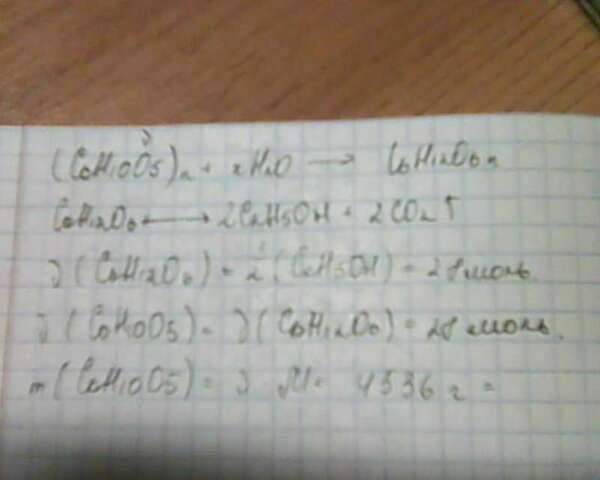 (C6H10O5)n + nH2O → C6H12O6 n
C6H12O6 ⟷ 2C2H5OH + 2CO2↑
ν(C6H12O6) = 1/2 (C2H5OH) = 28 моль.
ν(C6H10O5) = ν(C6H12O6) = 28 моль.
m(C6H10O5) = ν M = 4536 г =